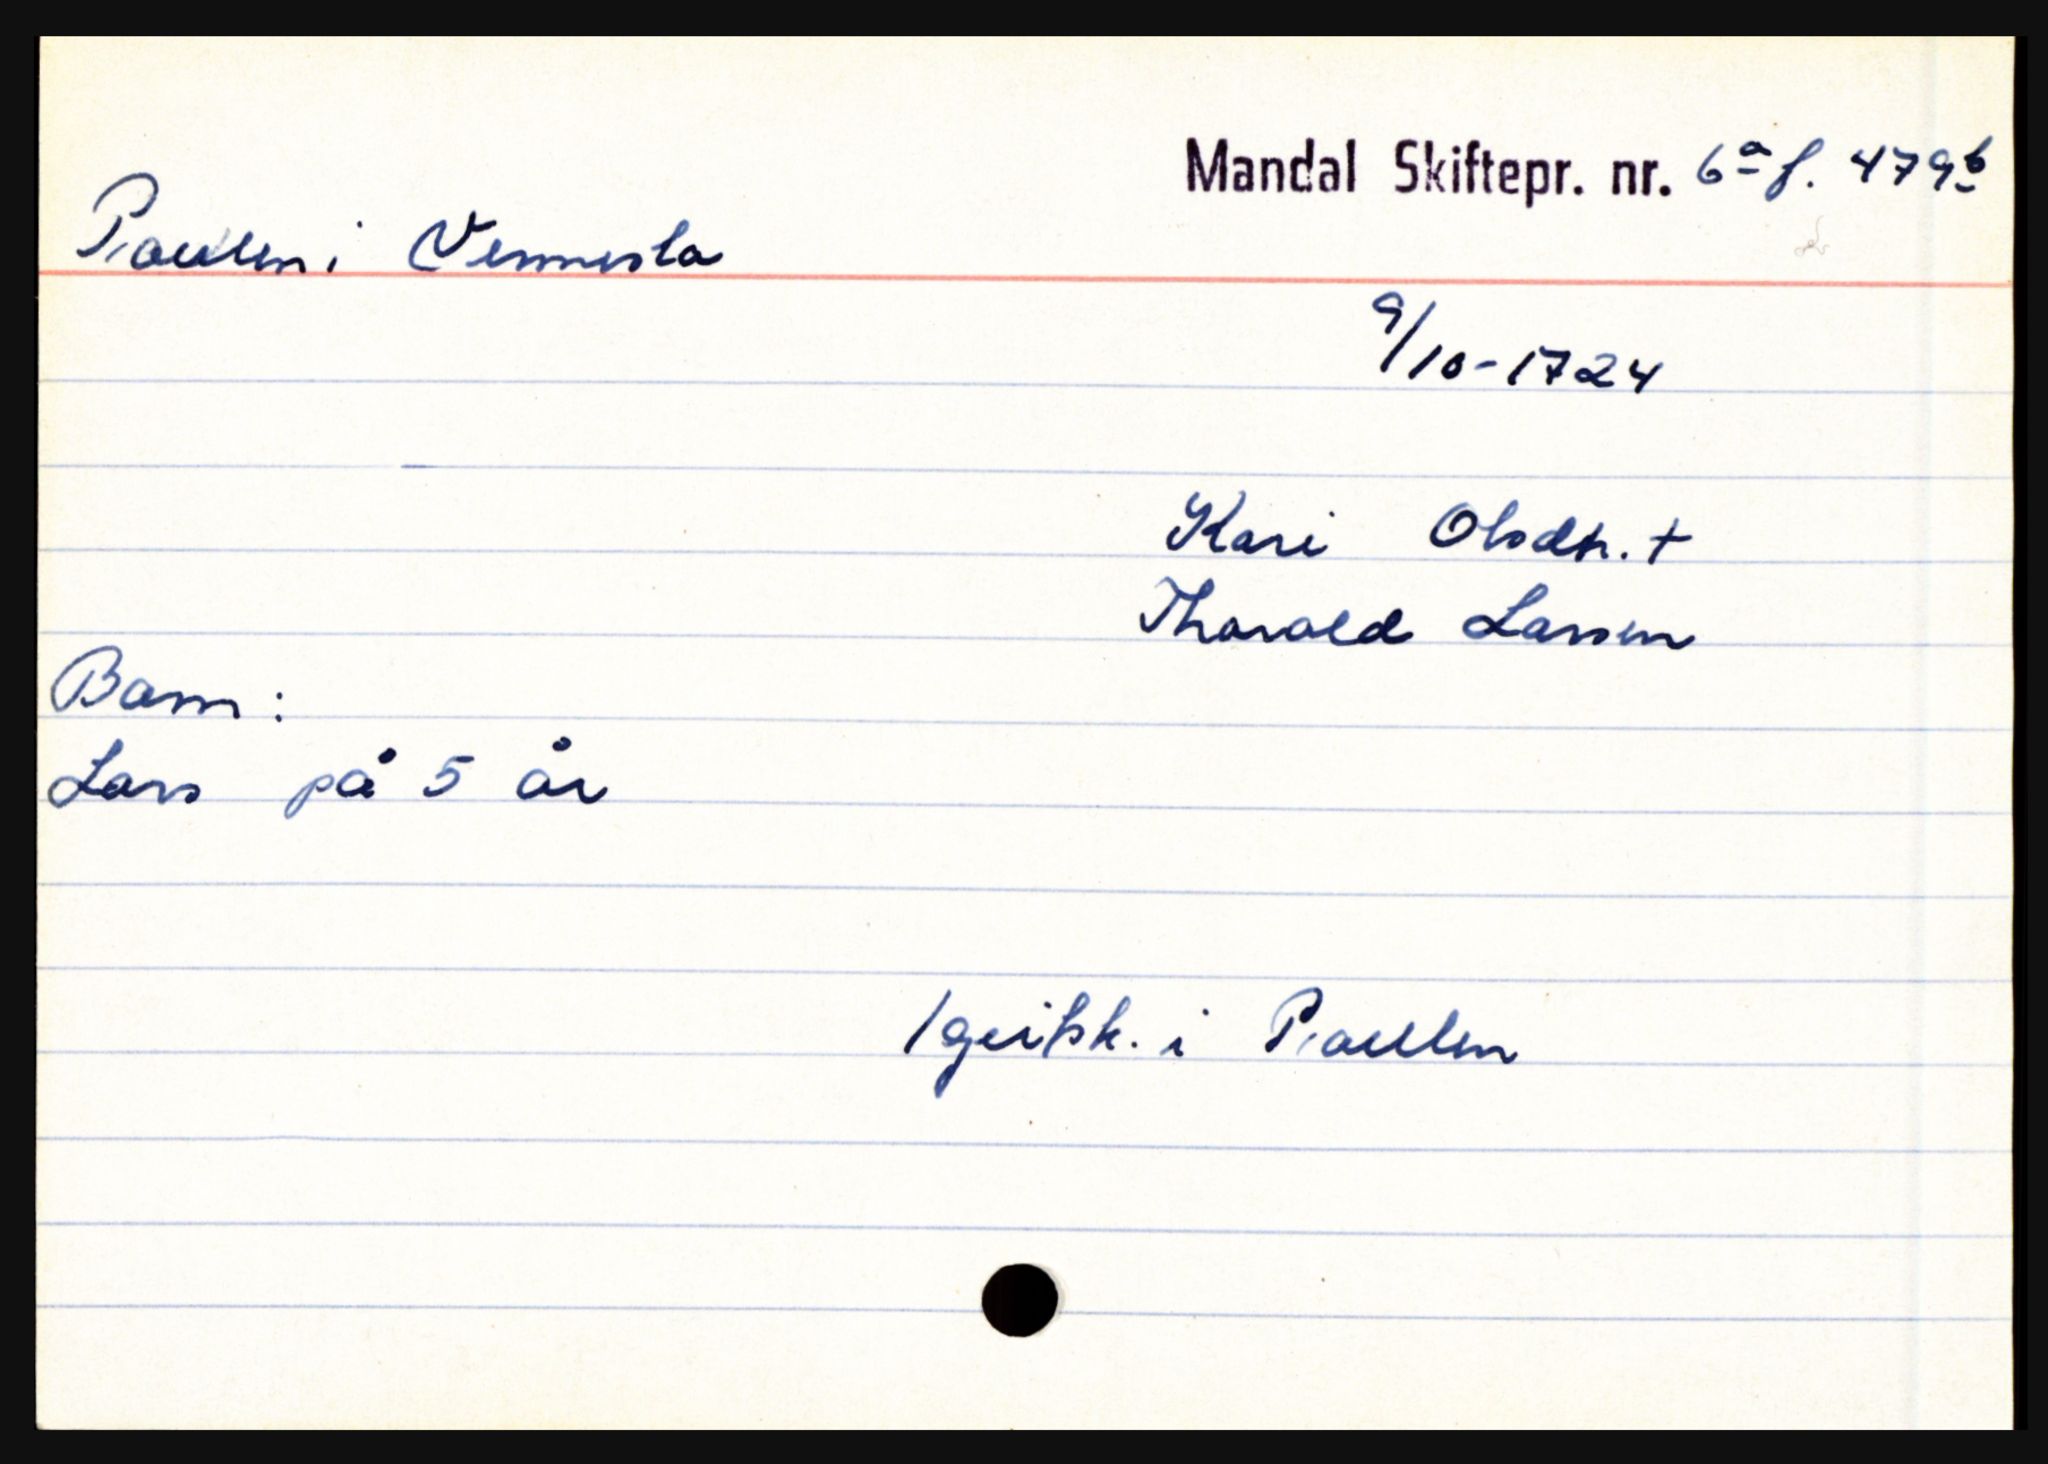 Mandal Skiftepr. nr. 6a f. 479b
Paulen i Vennesla
9/10-1724
Kari Olsdtr. +
Tharald Larsen
Barn:
Lars på 5 år
1 geitsk. i Paulen